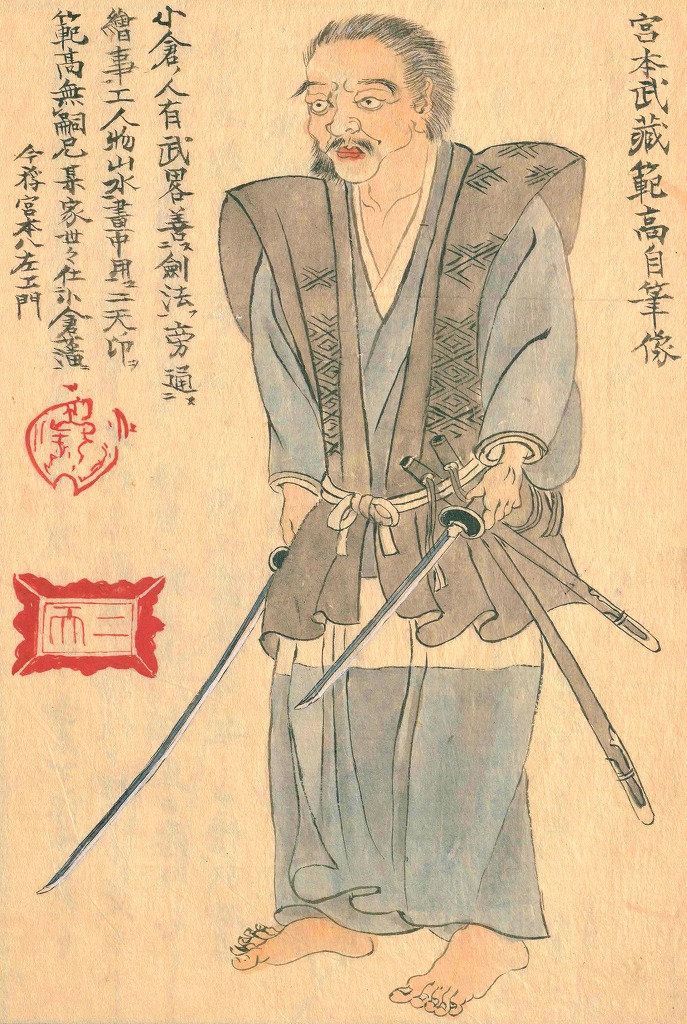 宮本武藏範高自筆像
小倉ノ人有武畧善ニス劍法ヲ旁通ニス
繪事工人物山水畫中用二天印ヲ
範高無嗣兄某家世々仕小倉藩
今稱宮本八左エ門
二天